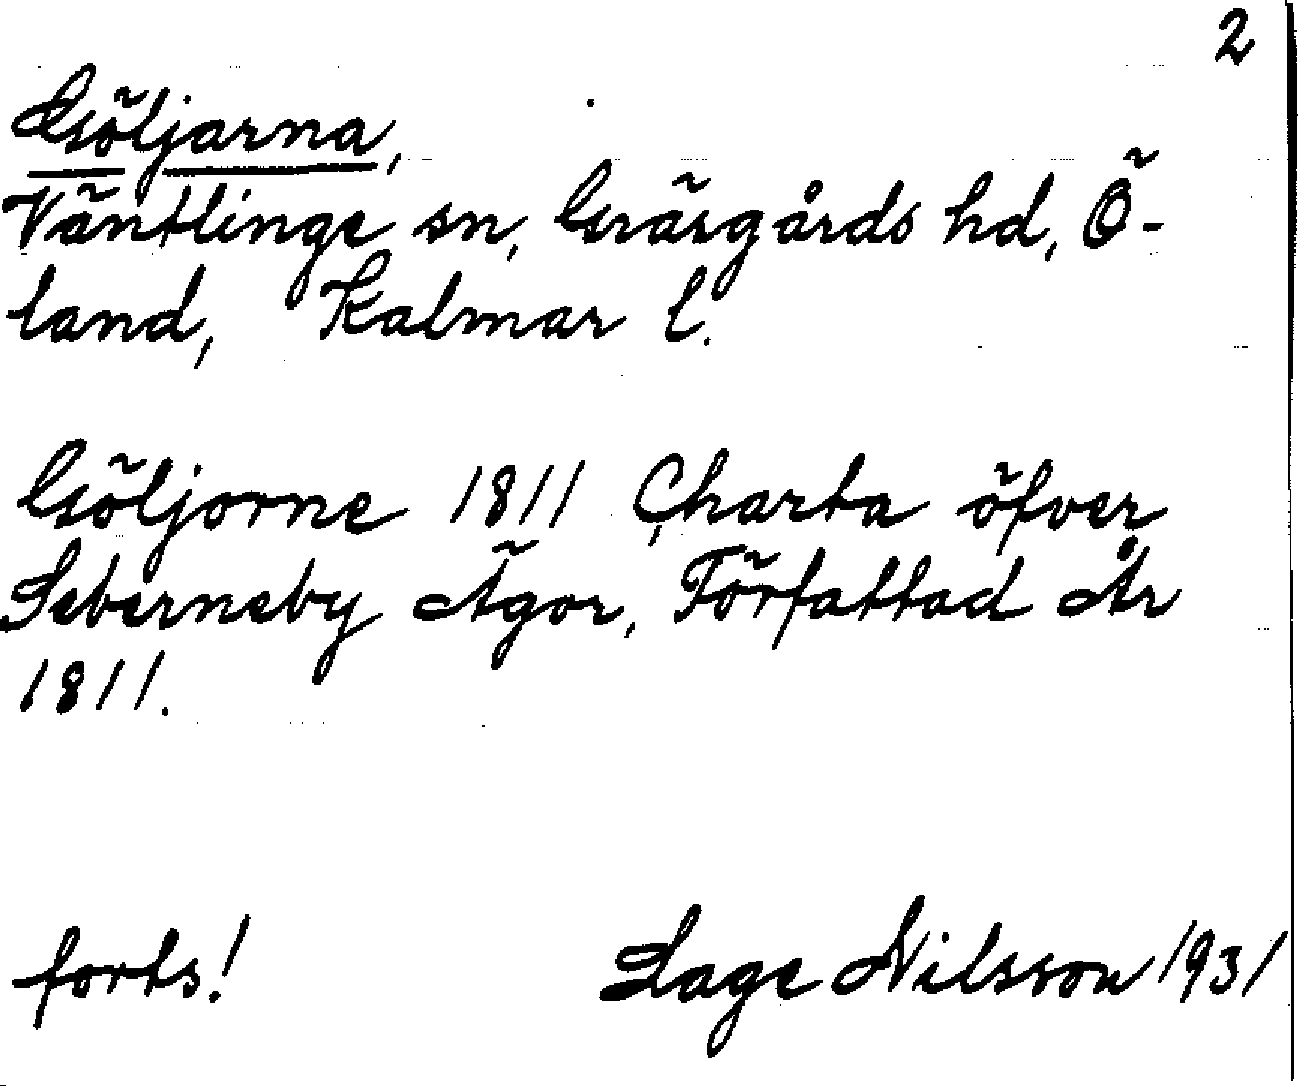 2
Göljarna,
Väntlinge sn, Gräsgårds hd, Ö-
land, Kalmar l.
Göljorne 1811 Charta öfver
Seberneby Ägor, Författad År
1811.
forts! Lage Nilsson 1931